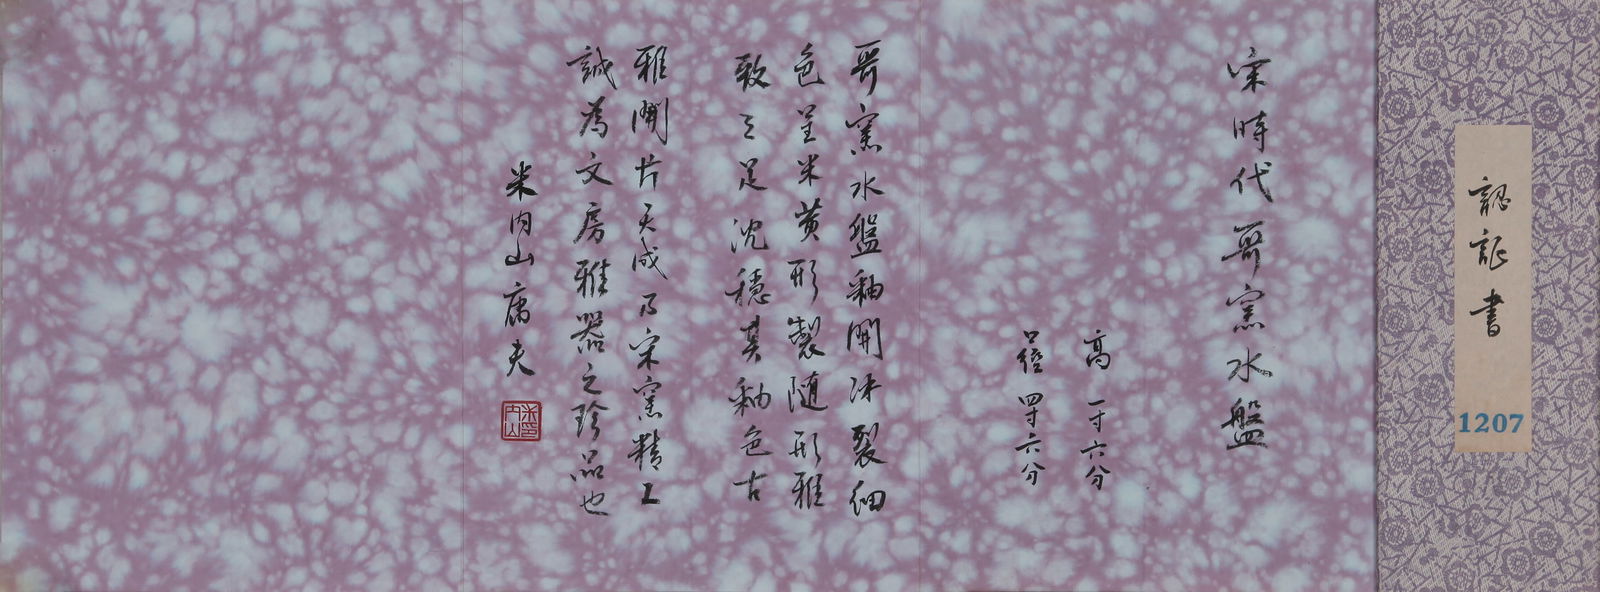 認証書
1207
宋時代哥窯水盤
高一寸六分
口径四寸六分
哥窯水盤釉開冰裂細
色呈米黄形製随形雅
致三足沈穏其釉色古
雅開片天成乃宋窯精工
誠為文房雅器之珍品也
米内山庸夫
米内山印